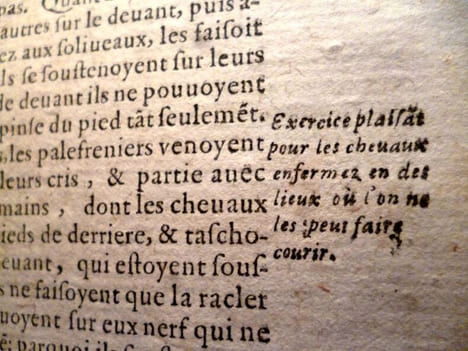 pas. Quant
autres ſur le deuant, puis a-
ez aux ſoliueaux, les faiſoit
ils ſe ſouſtenoyent ſur leurs
de deuant ils ne pouuoyent
pinſe du pied tãt ſeulemẽt.
s, les palefreniers venoyent
leurs cris, & partie auec
mains, dont les cheuaux
ieds de derriere, & taſcho-
euant, qui eſtoyent ſouſ-
s ne faiſoyent que la racler
uoyent ſur eux nerf qui ne
Exercice plaiſãt
pour les cheuaux
enfermez en des
lieux où l'on ne
les peut faire
courir.